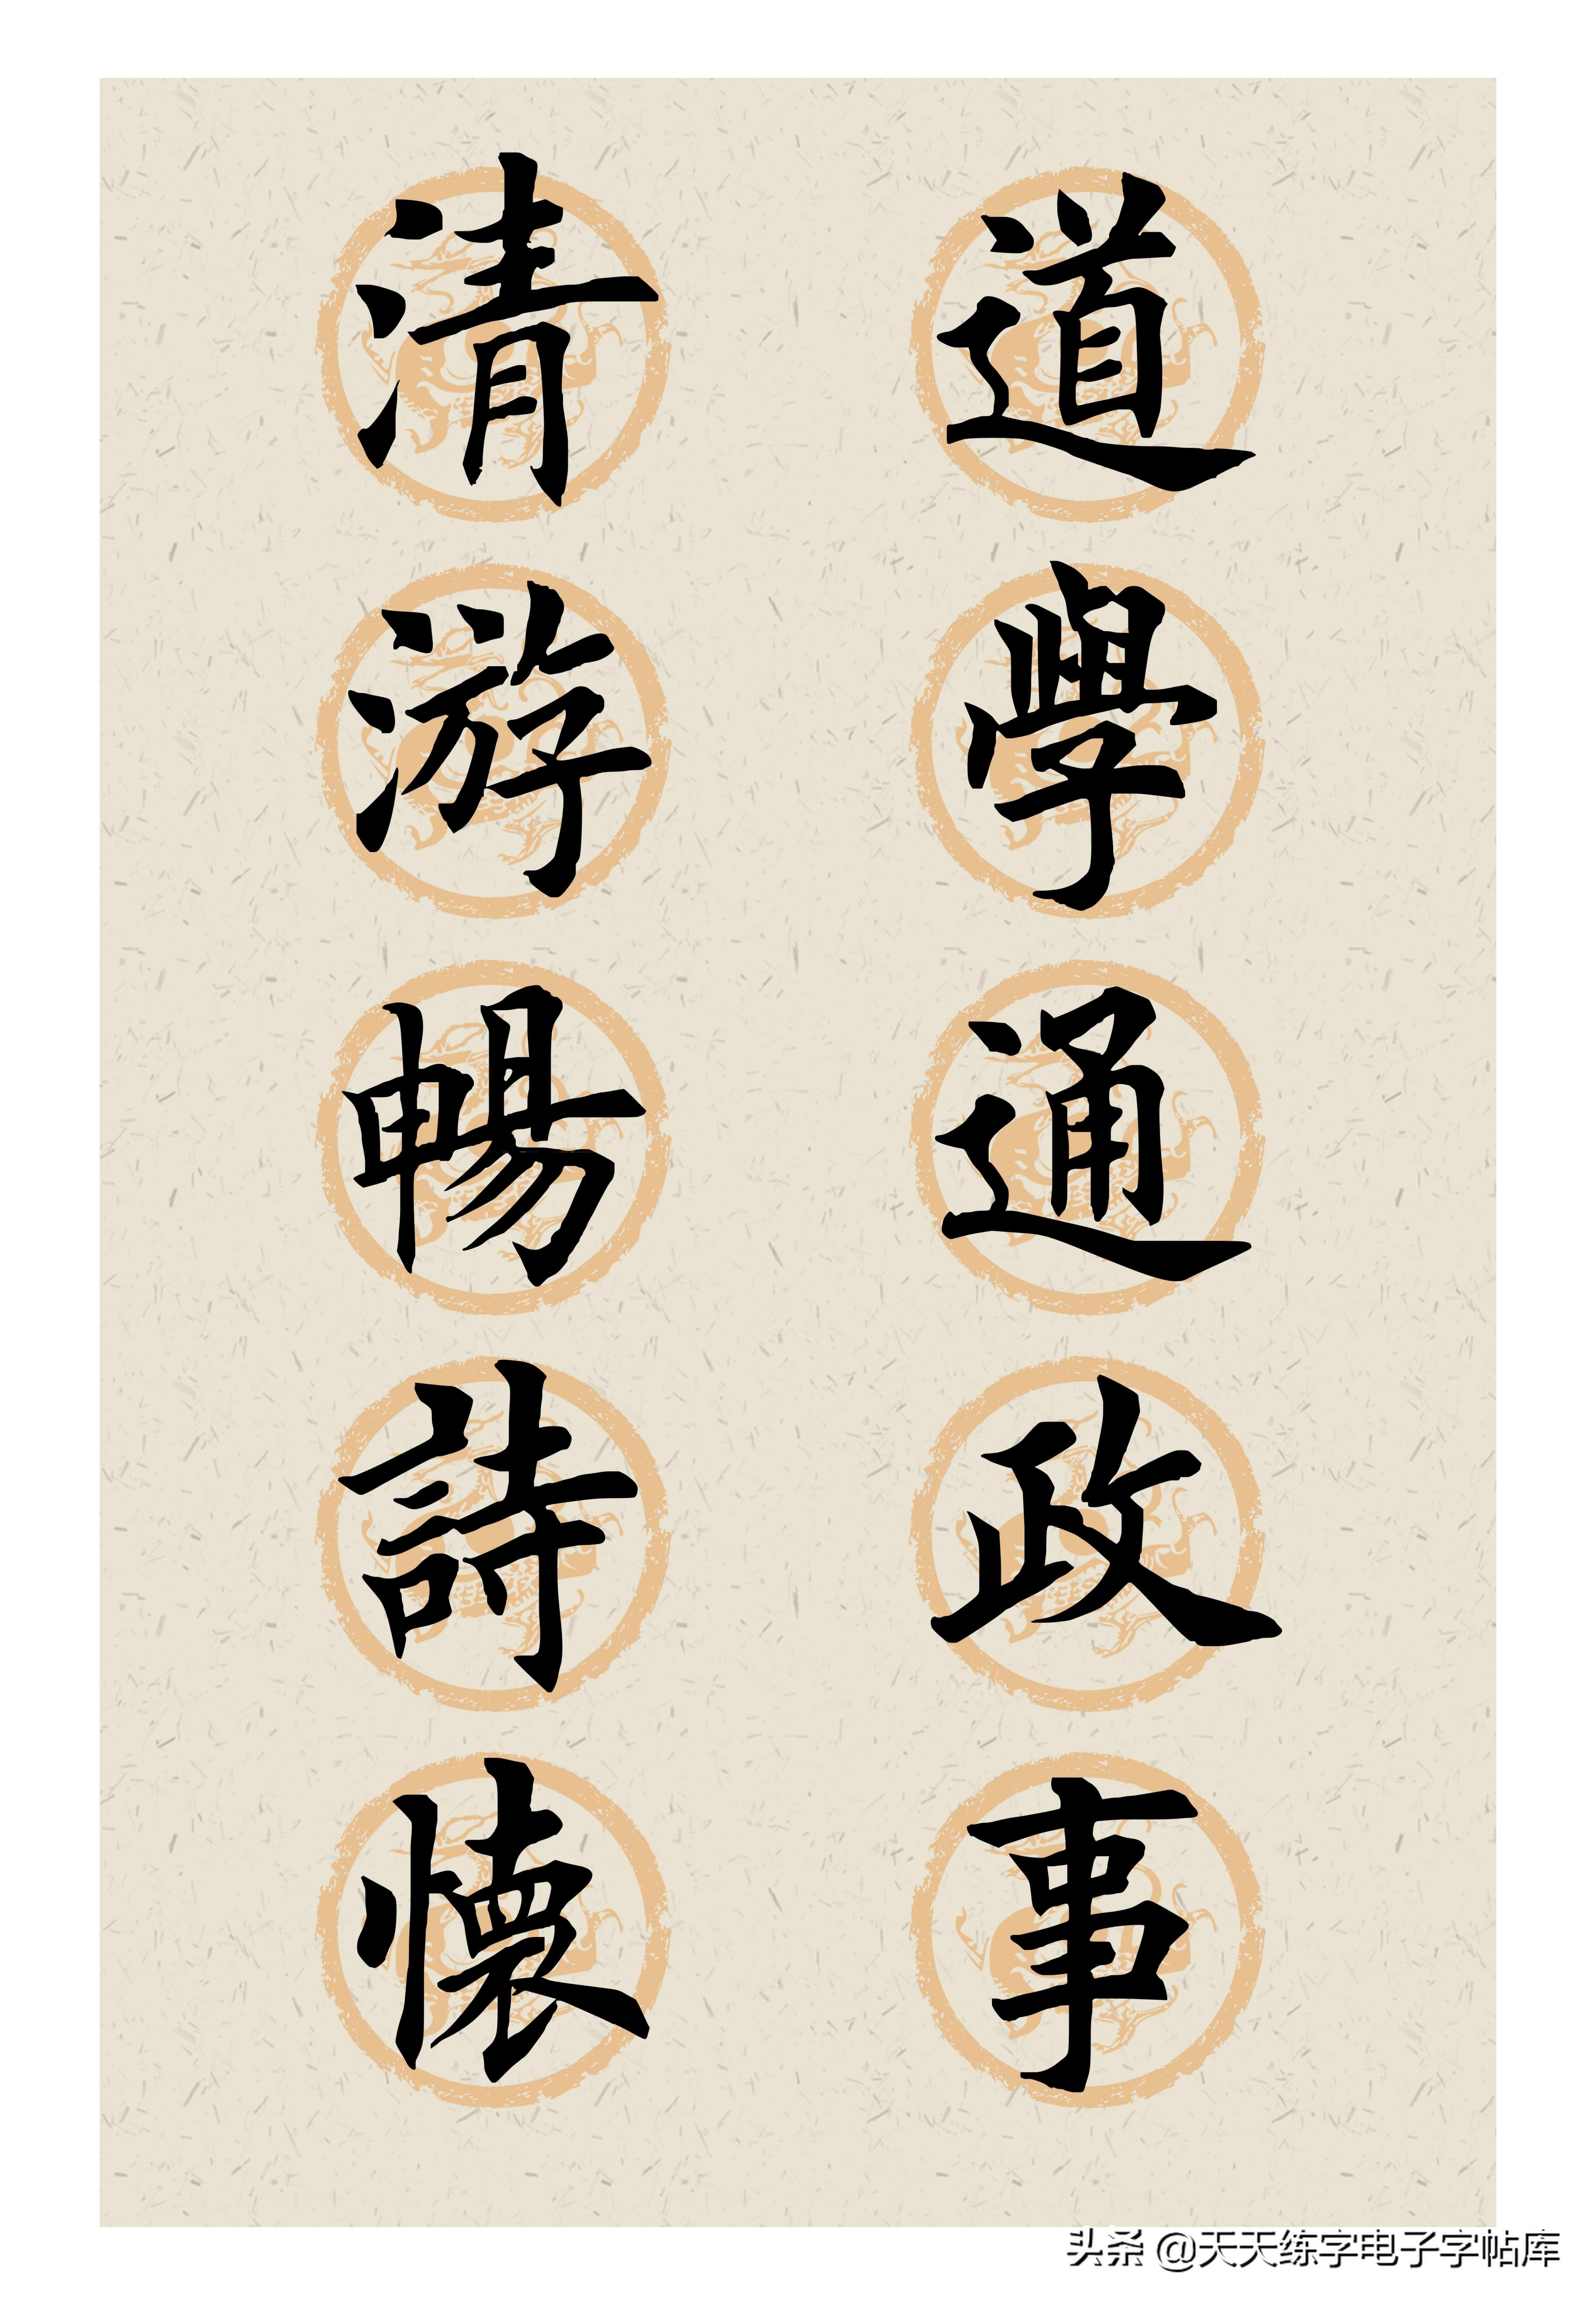 道學通政事
清游暢詩懷
头条 @天天练字电子字帖库